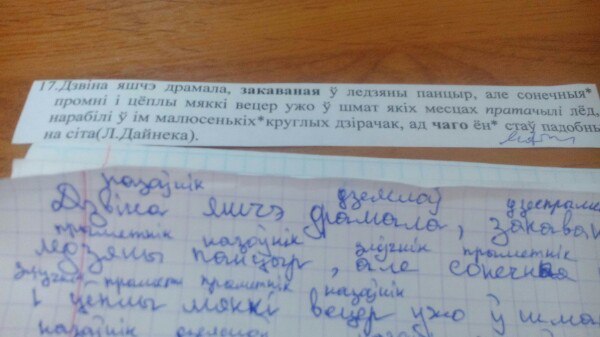 17.Дзвіна яшчэ драмала, закаваная ў ледзяны панцыр, але сонечныя*
промні і цёплы мяккі вецер ужо ў шмат якіх месцах праташылі лёд,
нарабілі ў ім малюсенькіх*круглых дзірачак, ад чаго ён* стаў падобны
на сіта(Л.Дайнека).
назоўнік дзеяслоў дзеепрыме
Дзвіна яшчэ драмала, закаван
прыметнік назоўнік злучнік прыметнік
ледзяны панцыр, але сонечныя
злучнік прыметн прыметнік назоўнік
і цёплы мяккі вецер ужо ў шма
назоўнік